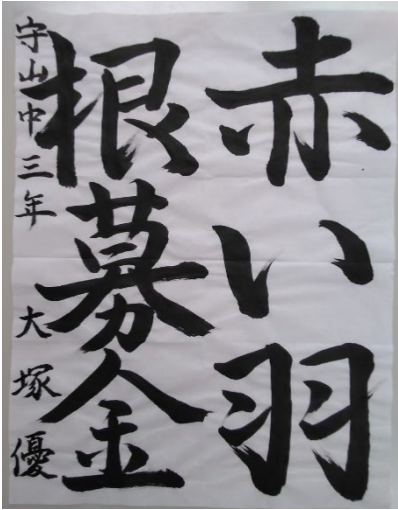 赤い羽
根募金
守山中三年 大塚優